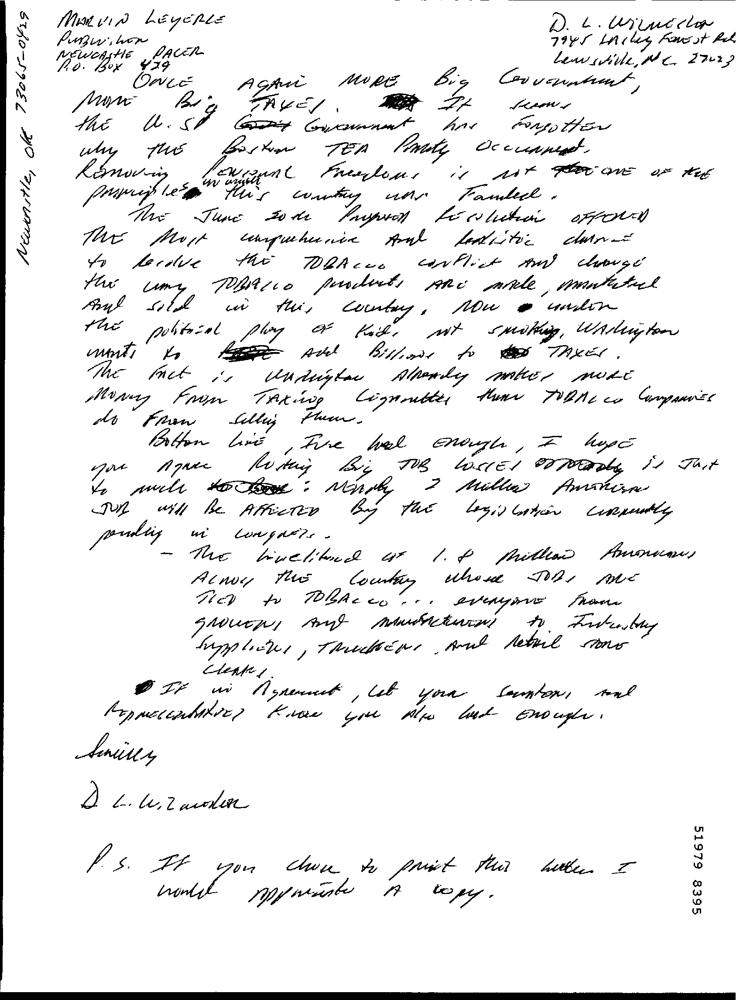 MARVIN LEYERLE
PUBLISHER
NEWCASTLE PACER
P.O. BOX 429
Newcastle, OK 73065-0429
D. L.
7945 Forest Rd
Lewisville, N.C. 27023
ONCE AGAIN MORE Big Government,
MORE Big TAXES. It seems
the U.S. Government has forgotten
why the Boston TEA Party occurred.
Removing Personal Freedoms is not ONE OF THE
principles in which this country was Founded.
The June 20th Proposed Resolution OFFERED
THE Most comprehensive And realistic chance
to Resolve the TOBACCO conflict AND change
the way TOBACCO products ARE made, marketed
And sold in this country. NOW under
the political ploy OF Kids not smoking, Washington
wants to Add Billions to TAXES.
The Fact is Washington Already makes MORE
Money From TAXing Cigarettes than TOBACCO Companies
do From selling them.
Bottom Line, I've had enough, I hope
you Agree Risking Big JOB LOSSES is Just
to much : Nearly 2 Million American
JOB will Be AFFECTED By the legislation currently
pending in congress.
- The livelihood of 1.8 Million Americans
Across the Country whose JOBS ARE
TIED to TOBACCO ... everyone From
growers And manufacturers to Industry
Suppliers, Truckers, And Retail store
clerks.
IF in Agreement, let your Senators and
Representatives Know you Also had enough.
D L.
P.S. If you chose to print this letter I
would appreciate A copy.
51979 8395